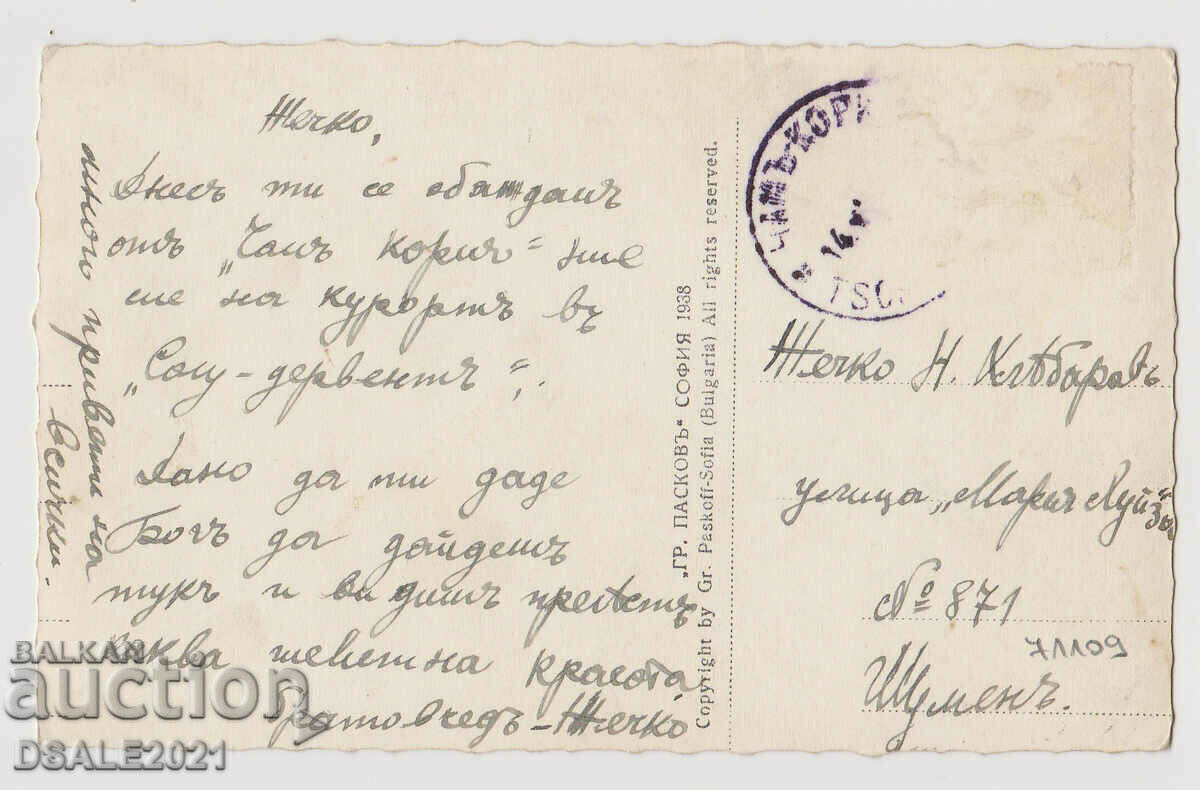 Жечко,
Днесъ ти се обаждамъ
отъ „Чамъ Кория“ ние
сме на курортъ въ
„Сагу-дервентъ“.
Дано да ти даде
Богъ да дойдешъ
тукъ и видишъ
каква красота
Братовчедъ - Жечко
много привети на
всички.
„ГР. ПАСКОВЪ“ СОФИЯ 1938
Copyright by Gr. Paskoff-Sofia (Bulgaria) All rights reserved.
ЧАМЪ-КОРИ
14
TSC
Жечко Н. Хлѣбаровъ
улица „Мария Луйза“
№ 871
Шуменъ.
71109
BALKAN
auction
DSALE2021